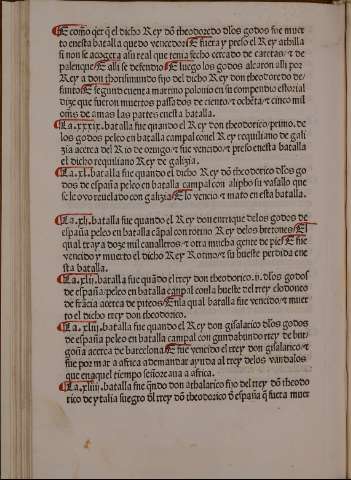 E como qer q̃ el dicho Rey dõ theodoredo dlos godos fue muer
to enesta batalla que do vencedor: E fuera y preso el Rey athilla
si non se acogera a su real que tenia fecho cercado de caretas/ & de
palenque/ E alli se defendio/ E luego los godos alçarõ alli por
Rey a don thorismundo fijo del dicho Rey don theodoredo de
funto/ E segund cuenta martino polonio en su compendio estorial
dize que fueron muertos passados de ciento/ & ochẽta/ & cinco mil
om̃s de amas las partes enesta batalla.
La .xxxix. batalla fue quando el Rey don theodorico/primo. de
los godos peleo en batalla campal conel Rey requiliano de gali
zia acerca del Rio de oruigo/ & fue vencido/ & preso enesta batalla
el dicho requiliano Rey de galizia.
La .xl. batalla fue quando el dicho Rey dõ theodorico dlos go
dos de españa peleo en batalla campal con alipho su vasallo que
se le ovo reuelado con galizia/ E lo vencio/ & mato en esta batalla.
La .xli. batalla fue quando el Rey don enrrique delos godos de
españa peleo en batalla cãpal con rotino Rey delos bretones/ El
qual traya doze mil caualleros/ & otra mucha gente de pie/ E fue
vencido y muerto el dicho Rey Rotino/ & su hueste perdida ene
sta batalla.
La .xlij. batalla fue quãdo el rrey don theodorico .ii. dlos godos
de españa/peleo en batalla campal con la hueste del rrey clodoueo
de frãcia acerca de piteos/ Enla qual batalla fue vencido/ & muer
to el dicho rrey don theodorico.
La .xliij. batalla fue quando el Rey don gisalarico dlos godos
de españa peleo en batalla campal con gundabundo rrey de bur
goña acerca de barcelona/ E fue vencido el rrey don gisalarico/ &
fue por mar a africa a demandar ayuda al rrey delos vandalos
que en aquel tiempo señoreaua a africa.
La .xliiij. batalla fue q̃ndo don athalarico fijo del rrey dõ theodo
rico de ytalia suegro dl rrey dõ theodorico d̃ españa q̃ fuera muer